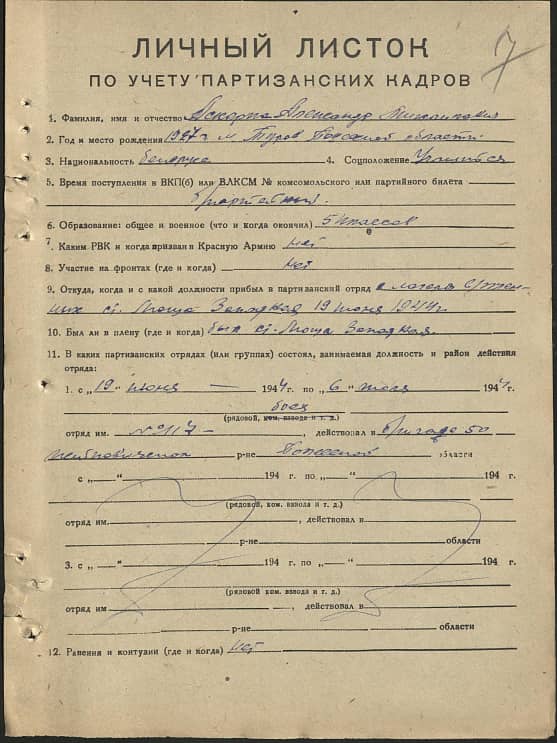 7
ЛИЧНЫЙ ЛИСТОК
ПО УЧЕТУ ПАРТИЗАНСКИХ КАДРОВ
1. Фамилия, имя и отчество Александр
2. Год и место рождения 1927 г м. Туров области
3. Национальность белорус 4. Соцположение Учащийся
5. Время поступления в ВКП(б) или ВЛКСМ № комсомольского или партийного билета
6. Образование: общее и военное (что и когда окончил) 5 классов
7. Каким РВК и когда призван в Красную Армию нет
8. Участие на фронтах (где и когда) нет
9. Откуда, когда и с какой должности прибыл в партизанский отряд с лагеря
ст. Западная 19 июня 1944 г.
10. Был ли в плену (где и когда) был ст. Западная.
11. В каких партизанских отрядах (или группах) состоял, занимаемая должность и район действия
отряда:
1. с „19“ июня — 1944 г. по „6“ июля 1944 г.
боец
(рядовой, ком. взвода и т. д.)
отряд им. № 117 , действовал в бригаде 50
р-не области
с „—“ 194 г. по „—“ 194 г.
(рядовой, ком. взвода и т. д.)
отряд им. , действовал в
р-не области
3. с „—“ 194 г. по „—“ 194 г.
(рядовой ком. взвода и т. д.)
отряд им , действовал в
р-не области
12. Ранения и контузии (где и когда) нет